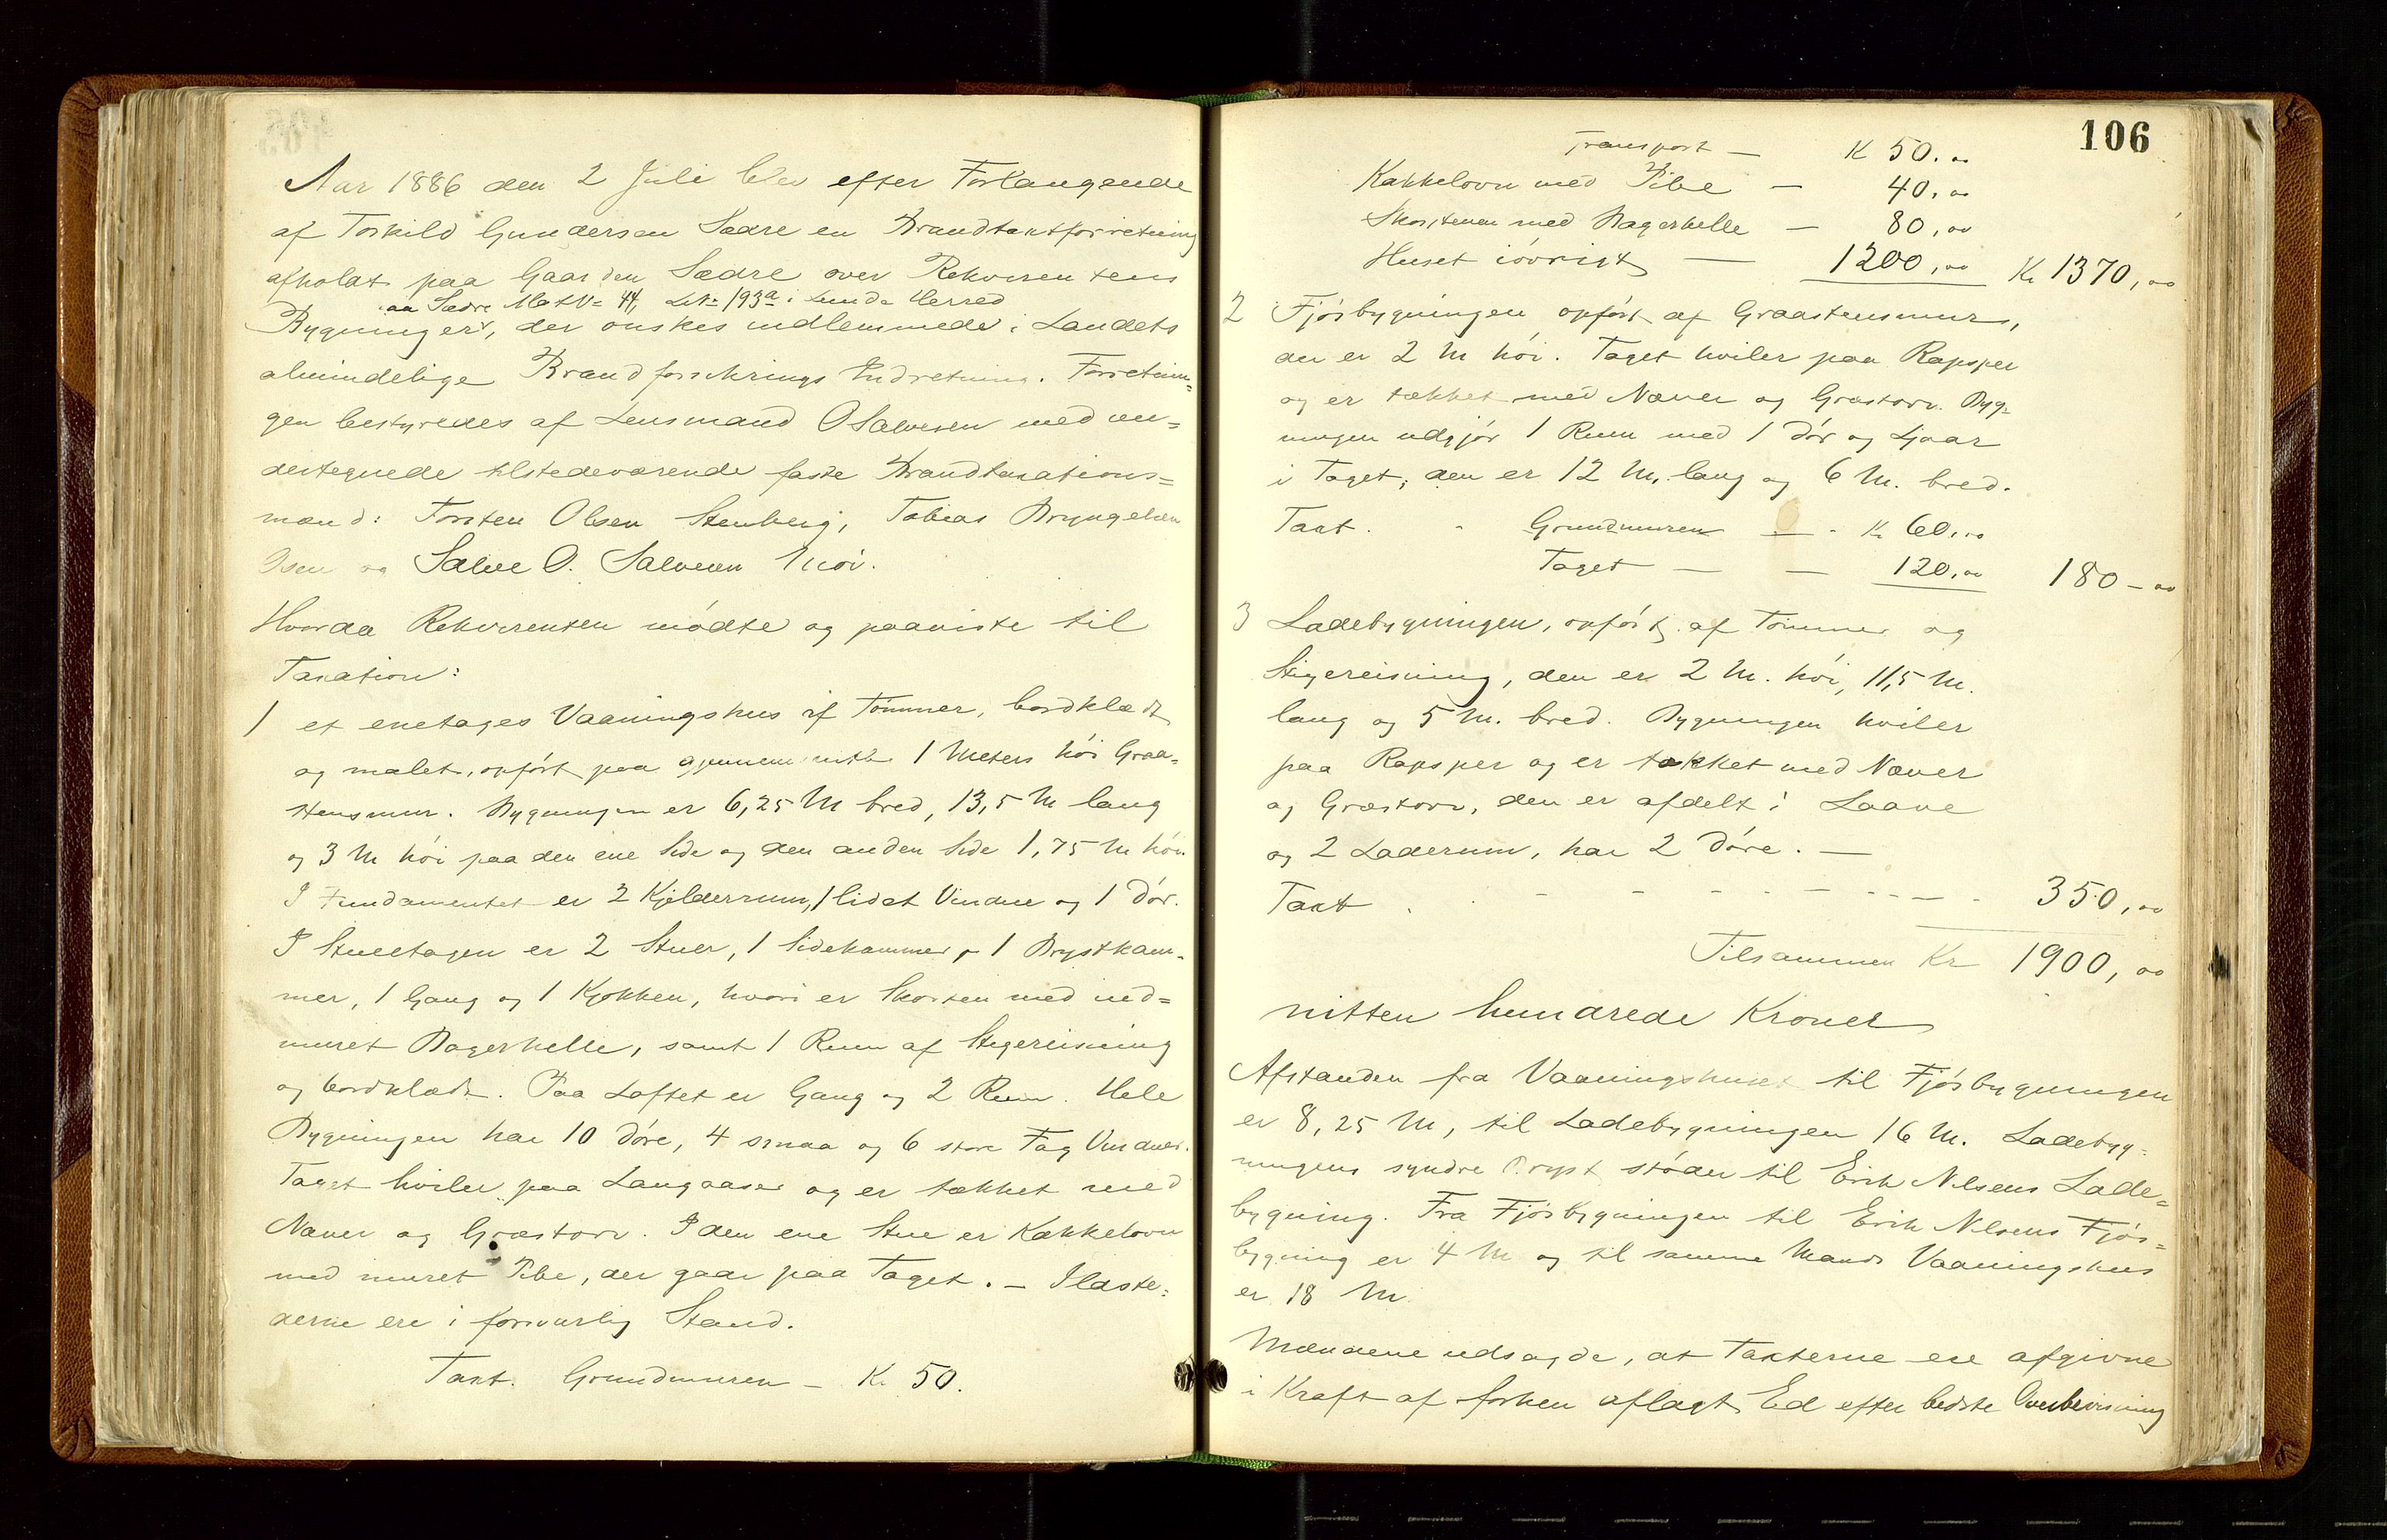 Aar 1886 den 2 Juli blev efter Forlangende
af Torkild Gundersen Sædre en Brandtaxtforretning
afholdt paa Gaarden Sædre over Rekvirentens
paa Sædre Mat No 44, L No 193a i Lunde Herred
Bygninger, der ønskes indlemmede i Landets
almindelige Brandforsikrings Indretning. Forretnin=
gen bestyredes af Lensmand O Salvesen med un=
dertegnede tilstedeværende faste Brandtaxations=
mænd: Torsten Olsen Stenberg, Tobias Bryngelsen
og Salve O. Salvesen Moi.
Hvorda Rekvirenten mødte og paaviste til
Taxation:
1 et enetages Vaaningshus af Tømmer, bordklædt
og malet, opført paa gjennemsnitl 1 Meters høi Graa=
stensmur. Bygningen er 6,25 M bred, 13,5 M lang
og 3 M høi paa den ene Side og den anden Side 1,75 M høi.
I Fundamentet er 2 Kjelderrum, 1 lidet Vindue og 1 Dør.
I Stueetagen er 2 Stuer, 1 Sidekammer, 1 Brystkam=
mer, 1 Gang og 1 Kjøkken, hvori er Skorsten med ind=
muret Bagerhelle, samt 1 Rum af Stegereisning
og bordklædt. Paa Loftet er Gang og 2 Rum. Hele
Bygningen har 10 Døre, 4 smaa og 6 store Fag Vinduer.
Taget hviler paa Langaaser og er tækket med
Næver og Græstorv. I den ene Stue er Kakkelovn
med muret Pibe, der gaar paa Taget. – Ildste=
derne ere i forsvarlig Stand.
Taxt. Grundmuren – Kr 50.
106
Transport – K 50.00
Kakkelovn med Pibe – 40,00
Skorstenen med Bagerhelle – 80,00
Huset iøvrigt – 1200,00 Kr 1370,00
2 Fjøsbygningen opført af Graastensmur,
der er 2 M høi. Taget hviler paa Rapsper
og er tækket med Næver og Græstorv. Byg=
ningen udgjør 1 Rum med 1 Dør og Ljaar
i Taget, den er 12 M. lang og 6 M. bred.
Taxt. - Grundmuren – - Kr 60,00
Taget – – 120,00 180 – 00
3 Ladebygningen, opført af Tømmer og
Stigereisning, den er 2 M. høi, 11,5 M.
lang og 5 M. bred. Bygningen hviler
paa Rapsper og er tækket med Næver
og Græstorv, den er afdelt i Laave
og 2 Laderum, har 2 Døre. –
Taxt . - - - - - - - - - 350,00
Tilsammen Kr 1900,00
nitten hundrede Kroner
Afstanden fra Vaaningshuset til Fjøsbygningen
er 8,25 M, til Ladebygningen 16 M. Ladebyg=
ningens syndre Bryst støder til Erik Nilsens Lade=
bygning. Fra Fjøsbygningen til Erik Nilsens Fjøs=
bygning er 4 M og til samme Mands Vaaningshus
er 18 M.
Mændene udsagde, at Taxterne ere afgivne
i Kraft af forhen aflagt Ed efter bedste Overbevisning